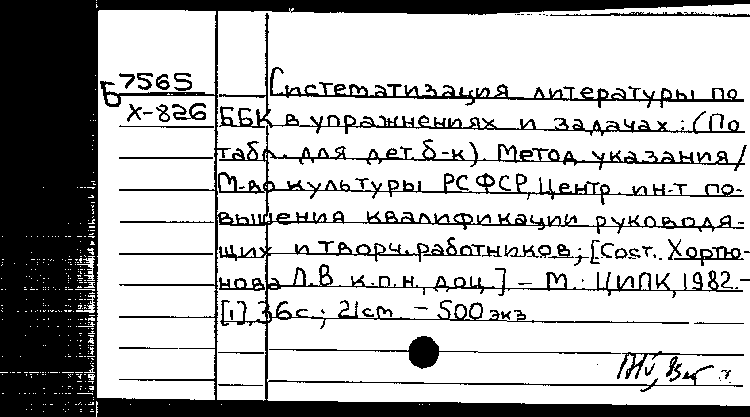 Б 7565
Х-826
Систематизация литературы по
ББК в упражнениях и задачах: (По
табл. для дет. б-к). Метод. указания/
М-во культуры РСФСР, Центр. ин-т по-
вышения квалификации руководя-
щих и творч. работников; [Сост. Хортю-
нова Л.В к.п.н., доц.] - М.: ЦИПК, 1982.-
[1], 36 с.; 21 cm. - 500 экз.